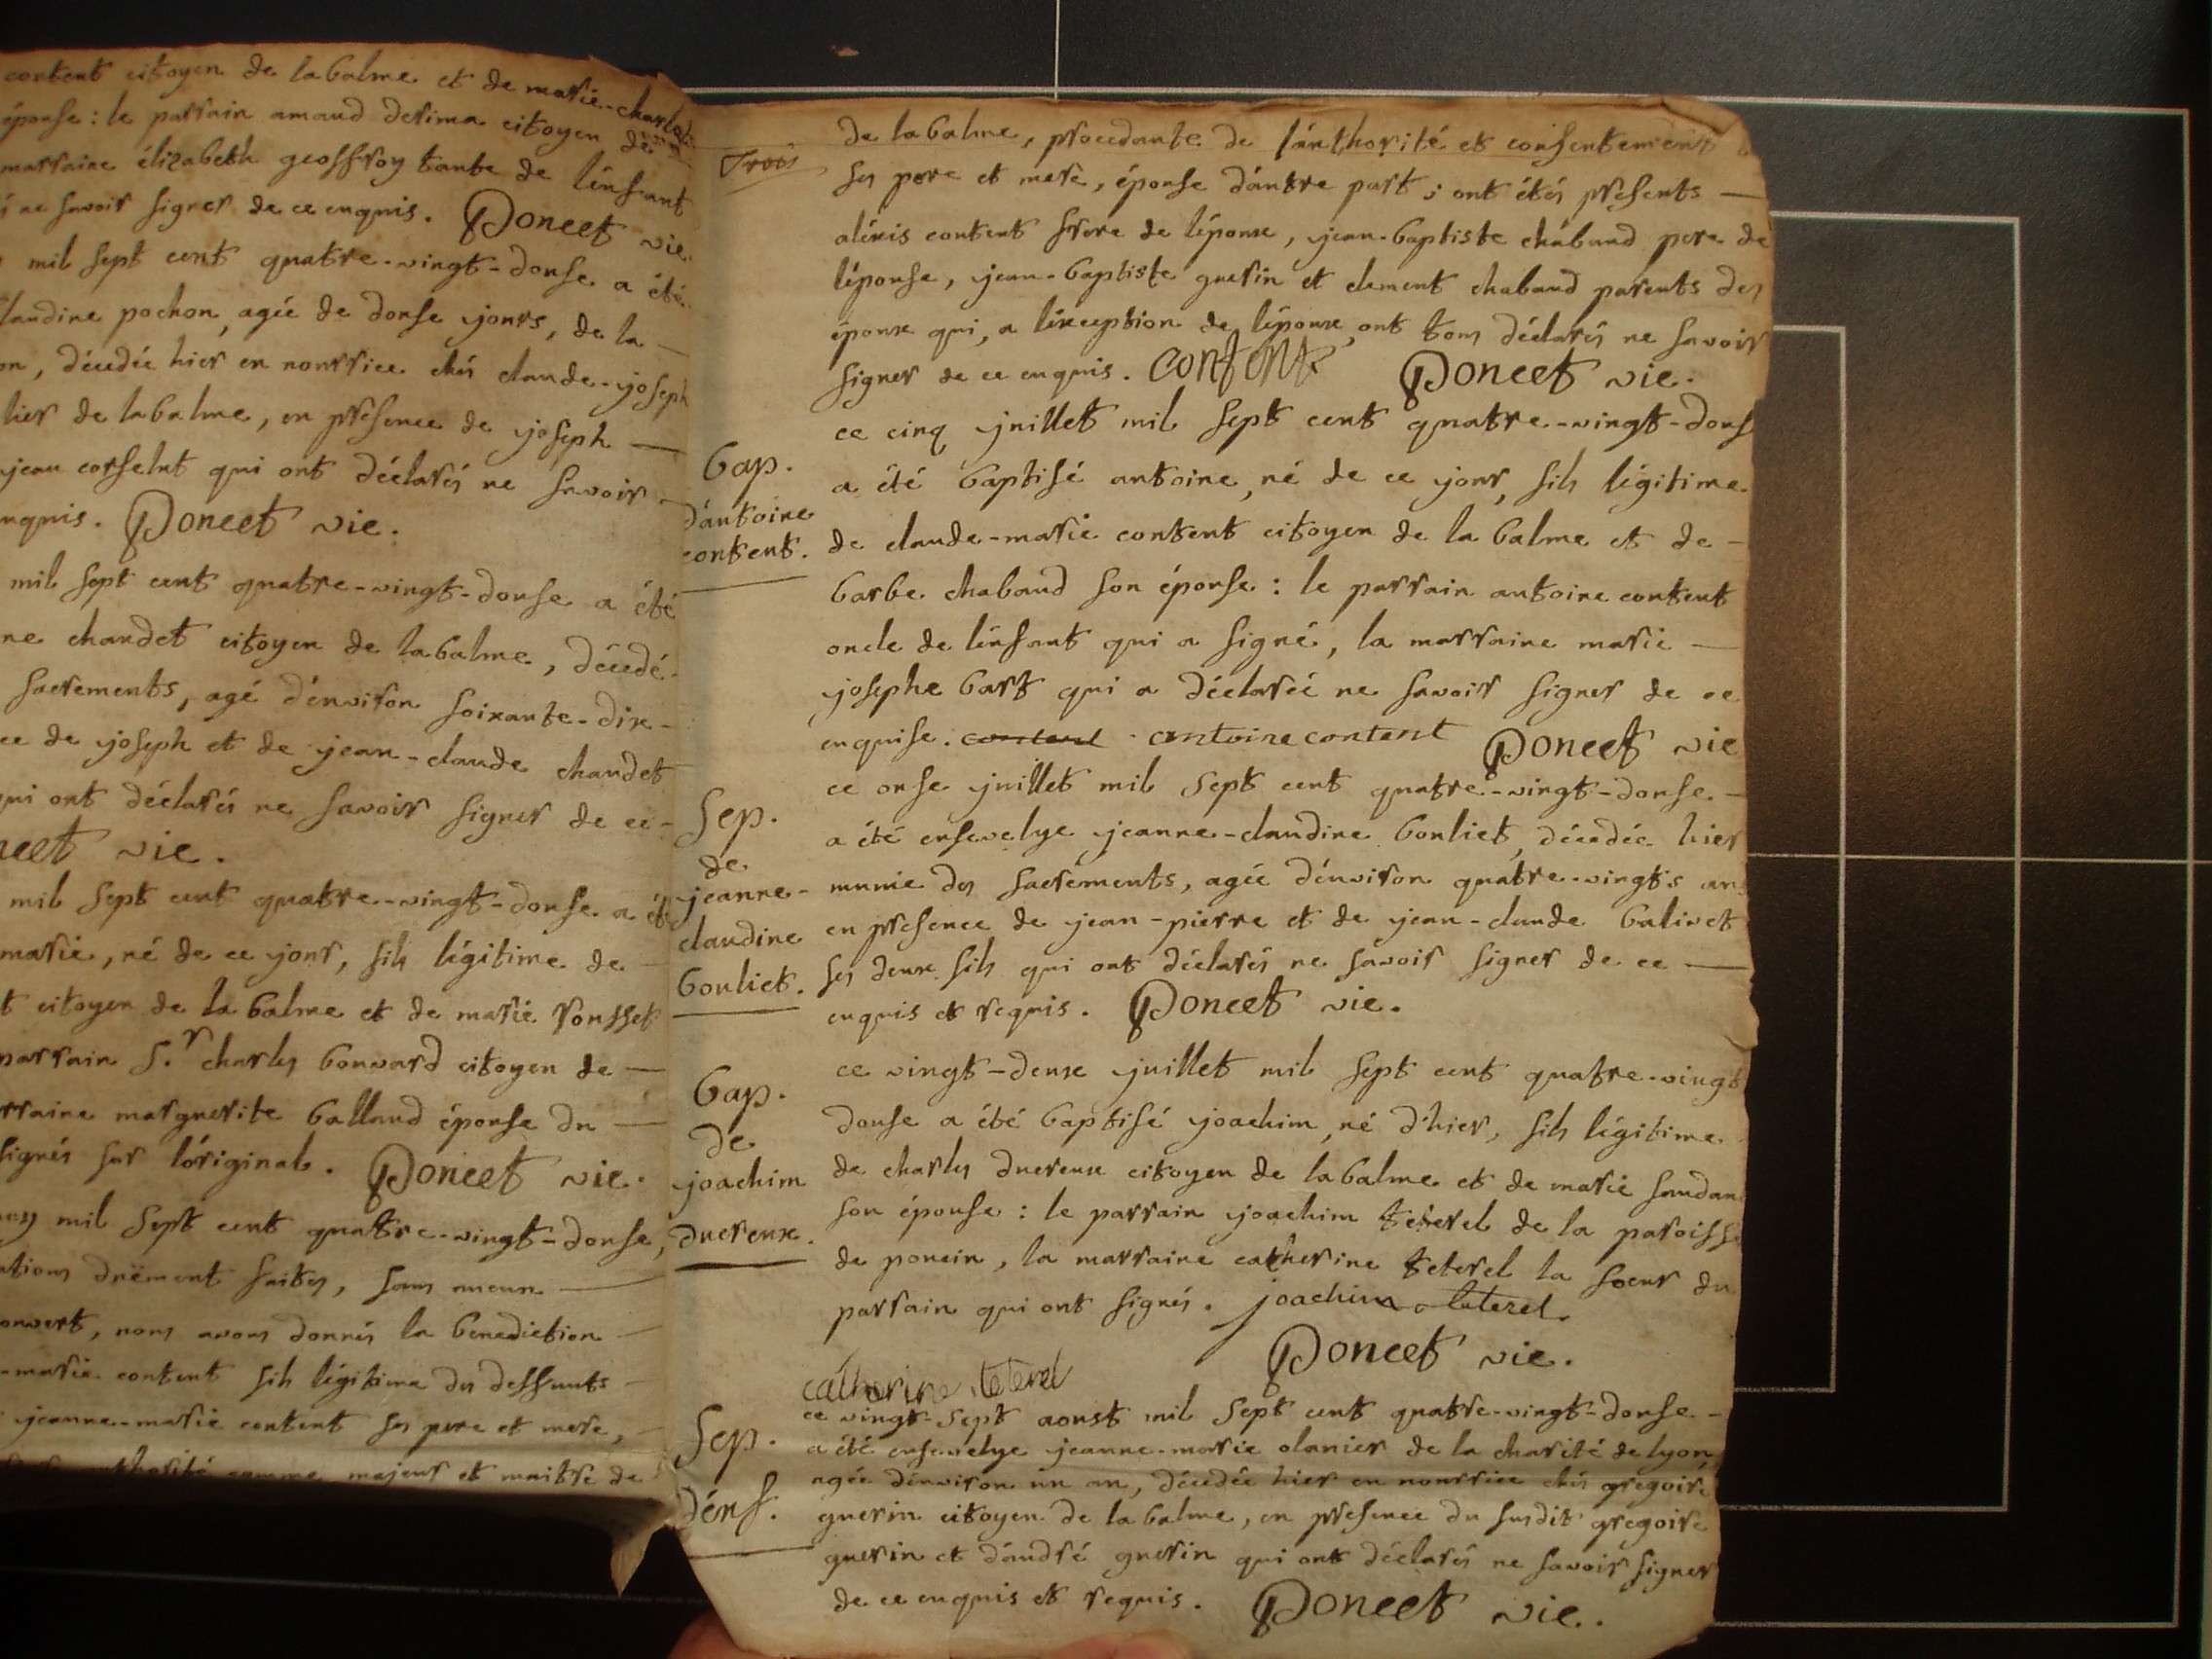 content citoyen de labalme et de marie-charlo
épouse : le parrain amaud desima citoyen de
marraine élizabeth geoffroy tante de l'énfant
s ne savoir signer de ce enquis. Poncet vic.
mil sept cent quatre-vingt-douse a été
laudine pochon, agée de douse jours, de la
on, décedée hier en nourrice chés claude-joseph
lier de labalme, en présence de joseph
jean corselut qui ont déclarés ne savoir
nquis. Poncet vic.
mil sept cent quatre-vingt-douse a été
ne chaudet citoyen de labalme, décedé
sacrements, agé d'énviron soixante-dix-
ce de joseph et de jean-claude chaudet
qui ont déclarés ne savoir signer de ce
ncet vic.
mil sept cent quatre-vingt-douse a ét
marie, né de ce jour, fils légitime de
t citoyen de la balme et de marie rousset
parrain S.r charles bonnard citoyen de
rraine marguerite balland épouse du
signés sur l'original. Poncet vic.
mil sept cent quatre-vingt-douse,
ations duëment faites, sans aucun
ouvert, nous avons donnés la benediction
-marie content fils légitime des deffunts
jeanne-marie content ses pere et mere,
authorité comme majeur et maitre de
Trois
de labalme, procedante de l'áuthorité et consentement
ses pere et mere, épouse d'áutre part ; ont étés présents
aléxis content frere de l'époux, jean-baptiste chabaud pere de
l'épouse, jean-baptiste guerin et clement chabaud parents des
époux qui, a l'éxception de l'époux, ont tous déclarés ne savoir
signer de ce enquis. content Poncet vic.
Bap.
d'antoine
content.
ce cinq juillet mil sept cent quatre-vingt-dous
a été baptisé antoine, né de ce jour, fils légitime
de claude-marie content citoyen de la balme et de
barbe chabaud son épouse : le parrain antoine content
oncle de l'énfant qui a signé, la marraine marie
josephe bart qui a déclarée ne savoir signer de ce
enquise. content antoine content Poncet vic
Sep.
de
jeanne-
claudine
bouliet.
ce onse juillet mil sept cent quatre-vingt-douse
a été ensevelye jeanne-claudine bouliet, décedée hier
munie des sacréments, agée d'énviron quatre-vingts an
en présence de jean-pierre et de jean-claude balivet
ses deux fils qui ont déclarés ne savoir signer de ce
enquis et requis. Poncet vic.
Bap.
de
joachim
ducreux.
ce vingt-deux juillet mil sept cent quatre-vingt
douse a été baptisé joachim, né d'hier, fils légitime
de charles ducreux citoyen de labalme et de marie saudan
son épouse : le parrain joachim teterel de la paroisse
de poncin, la marraine catherine teterel la soeur du
parrain qui ont signés. joachim teterel
Poncet vic.
catherine teterel
Sep.
d'énf.
ce vingt-sept aoust mil sept cent quatre-vingt-douse
a été ensevelye jeanne-marie olanier de la charité de lyon,
agée d'énviron un an, décedée hier en nourrice chés gregoire
guerin citoyen de labalme, en présence du susdit gregoire
guerin et d'ándré guerin qui ont déclarés ne savoir signer
de ce enquis et requis. Poncet vic.